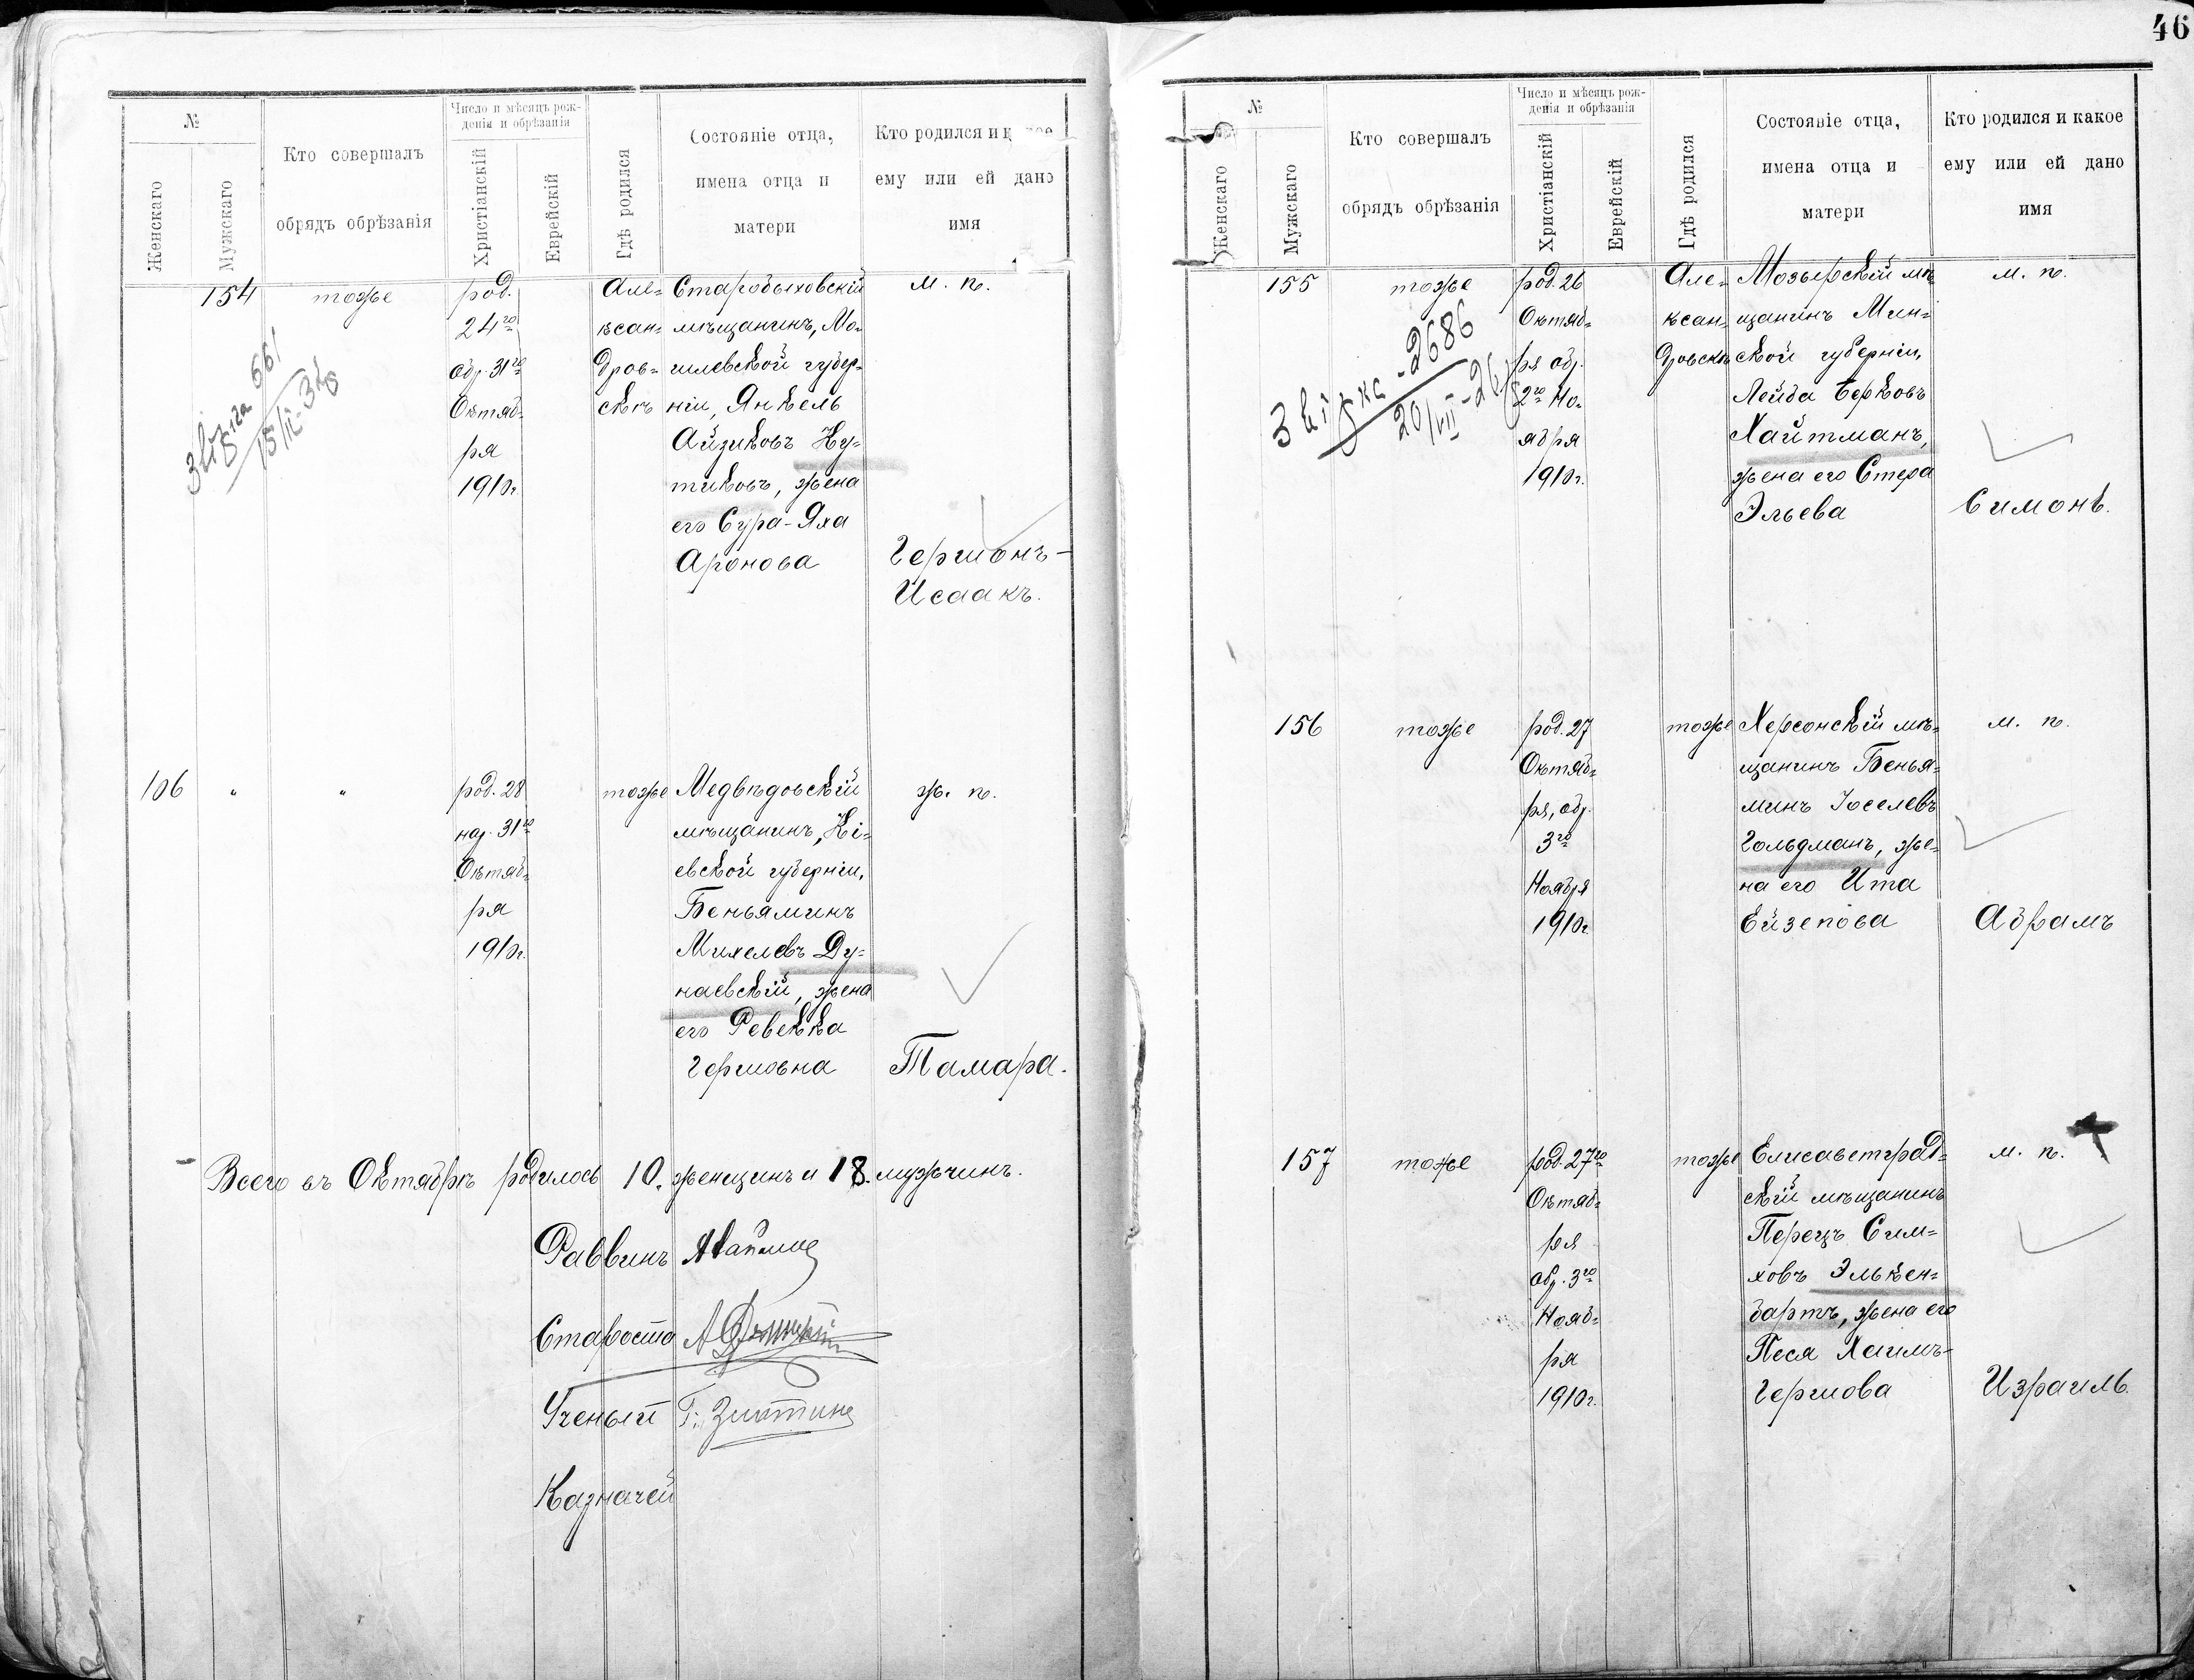 46
№
Женскаго
Мужскаго
Кто совершалъ
обрядъ обрѣзанія
Число и мѣсяцъ рож-
денія и обрѣзанія
Христіанскій
Еврейскій
Гдѣ родился
Состояніе отца,
имена отца и
матери
Кто родился и к
ему или ей дано
имя
154
тоже
род.
24го
обр. 31го
Октяб=
ря
1910г.
Але=
ксан=
дров=
скѣ
Старобыховскій
мѣщанинъ, Мо=
гилевской губер=
ніи, Янкель
Айзиковъ Ну=
тиковъ, жена
его Сура-Яха
Аронова
м. п.
Гершонъ-
Исаакъ.
661
15/II-
106
"
"
род. 28
нар. 31го
Октяб=
ря
1910г.
тоже
Медвѣдовскій
мѣщанинъ, Кі=
евской губерніи,
Беньяминъ
Михелевъ Ду=
наевскій, жена
его Ревекка
Гершовна
ж. п.
Тамара.
Всего въ Октябрѣ родилось 10. женщинъ и 18. мужчинъ.
Раввинъ
Староста
Ученый
Казначей
№
Женскаго
Мужскаго
Кто совершалъ
обрядъ обрѣзанія
Число и мѣсяцъ рож-
денія и обрѣзанія
Христіанскій
Еврейскій
Гдѣ родился
Состояніе отца,
имена отца и
матери
Кто родился и какое
ему или ей дано
имя
155
тоже
род. 26
Октяб=
ря обр.
2го Но=
ября
1910г.
Але=
ксан=
дровскѣ
Мозырскій мѣ
щанинъ Мин=
ской губерніи,
Лейба Берковъ
Хайтманъ,
жена его Стера
Эльева
м. п.
Симонъ.
2686
20/VII-26
156
тоже
род. 27
Октяб=
ря, обр.
3го
Ноября
1910г.
тоже
Херсонскій мѣ=
щанинъ Бенья=
минъ Іоселевъ
Гольдманъ, же=
на его Ита
Ейзепова
м. п.
Абрамъ
157
тоже
род. 27го
Октяб=
ря
обр. 3го
Нояб=
ря
1910г.
тоже
Елисаветград=
скій мѣщанинъ
Перецъ Сим=
ховъ Элькен=
бартъ, жена его
Песя Хаимъ-
Гершова
м. п.
Израиль.